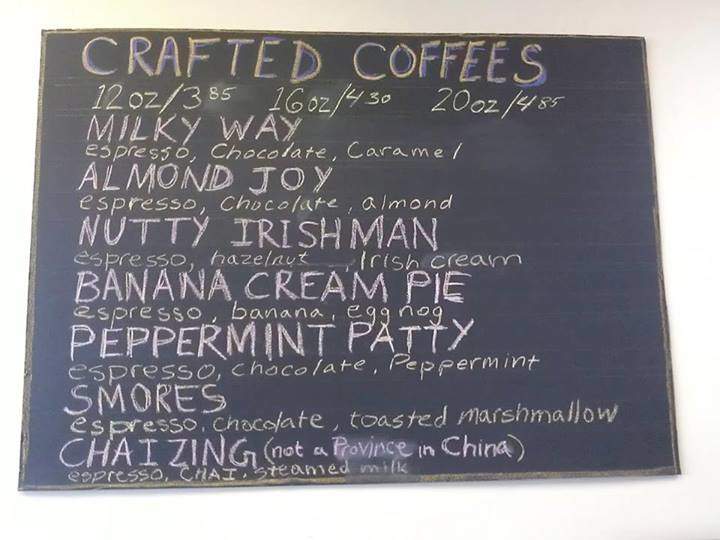 CRAFTED COFFEES
12oz/3 85 16oz/4 30 20oz/4 85
MILKY WAY
espresso, Chocolate, Caramel
ALMOND JOY
espresso, Chocolate, almond
NUTTY IRISHMAN
espresso, hazelnut, Irish cream
BANANA CREAM PIE
espresso, banana, egg nog
PEPPERMINT PATTY
espresso, chocolate, Peppermint
SMORES
espresso, chocolate, toasted marshmallow
CHAI ZING (not a Province in China)
espresso, CHAI, steamed milk